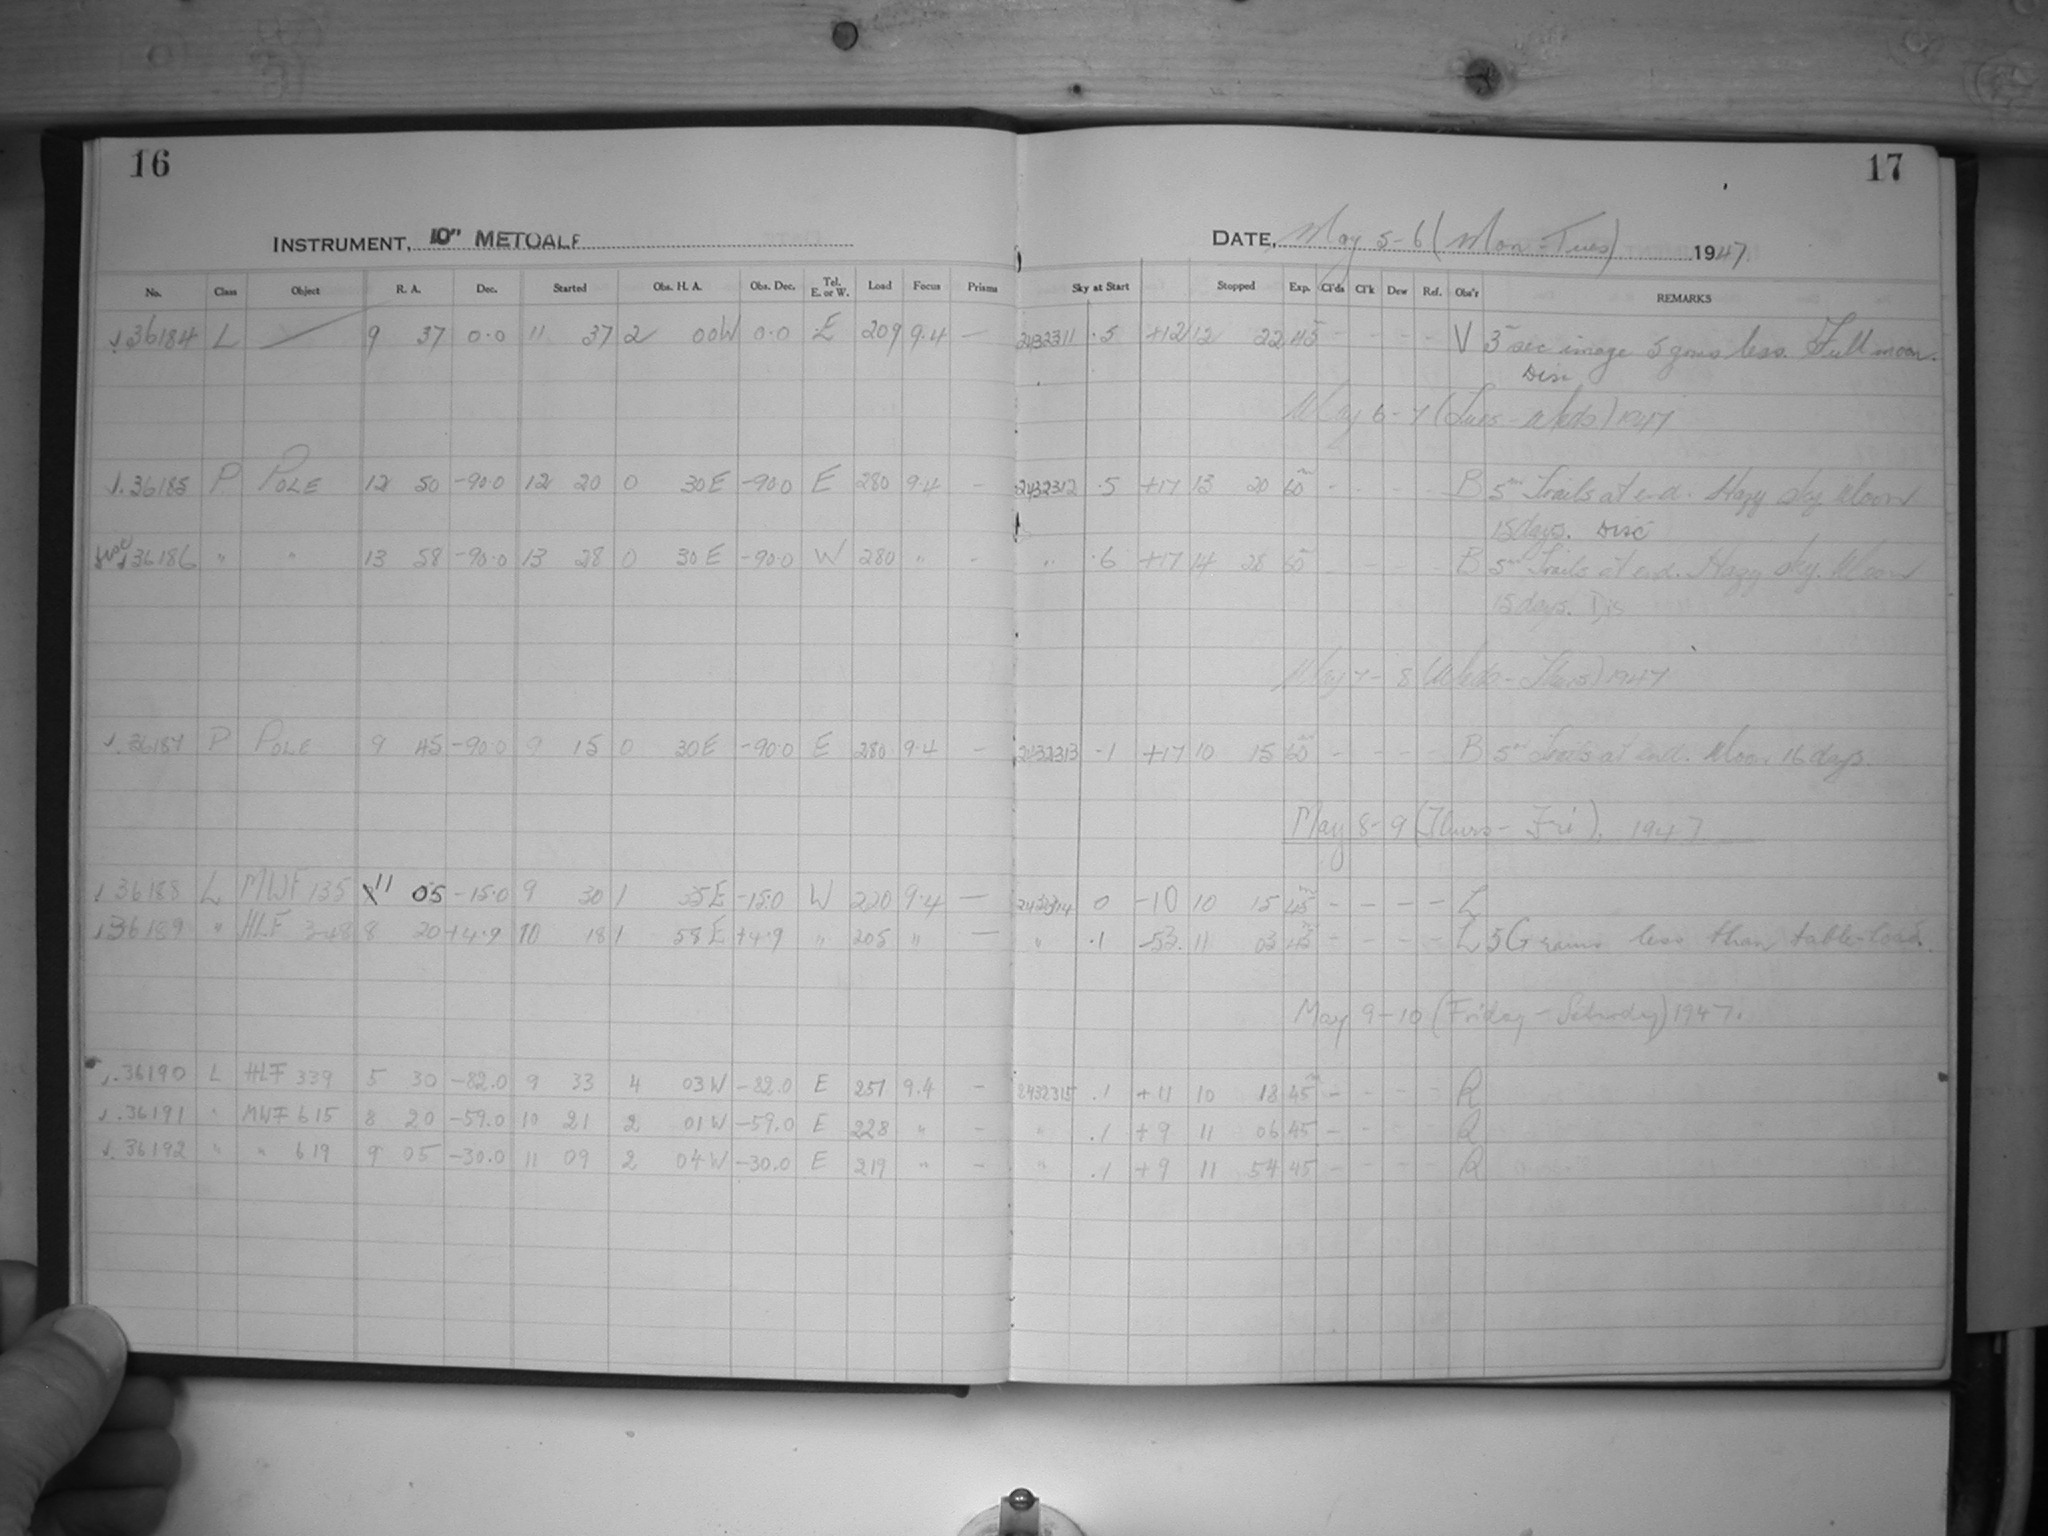 16
17
INSTRUMENT, 10" METCALF
DATE, May 5-6 (Mon-Tues) 1947
No. Class Object R. A. Dec. Started Obs. H. A. Obs. Dec. Tel. E. or W. Load Focus Prisms Sky at Start Stopped Exp. Cl'ds Cl'k Dew Ref. Obs'r REMARKS
36184 L 9 37 0.0 11 37 2 00W 0.0 E 209 9.4 — 2432311 .5 +12 12 22 45 - - - - V 3 sec image 5 grms less. Full moon.
Disc
May 6-7 (Tues-Weds) 1947
36185 P POLE 12 50 -90.0 12 20 0 30E -90.0 E 280 9.4 - 2432312 .5 +17 13 20 60 - - - - B 5m Trails at end. Hazy sky. Moon
15 days. Disc
Disc 36186 " " 13 58 -90.0 13 28 0 30E -90.0 W 280 " - " .6 +17 14 28 60 - - - - B 5m Trails at end. Hazy sky. Moon
15 days. Dis
May 7-8 (Weds-Thurs) 1947
36187 P POLE 9 45 -90.0 9 15 0 30E -90.0 E 280 9.4 - 2432313 .1 +17 10 15 60 - - - - B 5m Trails at end. Moon 16 days.
May 8-9 (Thurs-Fri). 1947
36188 L MWF 135 11 05 -15.0 9 30 1 35E -15.0 W 220 9.4 — 2432314 0 -10 10 15 45 - - - - L
36189 " HLF 348 8 20 +4.9 10 18 1 58E +4.9 " 205 " — " .1 -53. 11 03 45 - - - - L 5 Grams less than table-load.
May 9-10 (Friday-Saturday) 1947.
36190 L HLF 339 5 30 -82.0 9 33 4 03W -82.0 E 251 9.4 - 2432315 .1 +11 10 18 45 - - - - R
36191 " MWF 615 8 20 -59.0 10 21 2 01W -59.0 E 228 " - " .1 +9 11 06 45 - - - - R
36192 " " 619 9 05 -30.0 11 09 2 04W -30.0 E 219 " - " .1 +9 11 54 45 - - - - R